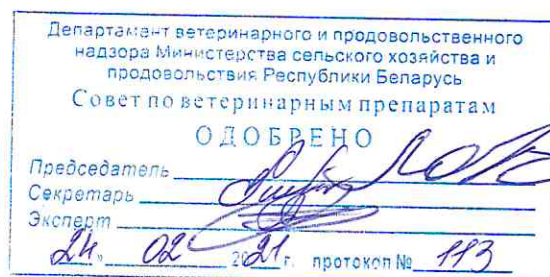 Департамент ветеринарного и продовольственного
надзора Министерства сельского хозяйства и
продовольствия Республики Беларусь
Совет по ветеринарным препаратам
ОДОБРЕНО
Председатель
Секретарь
Эксперт
24. 02 2021 г. протокол № 113